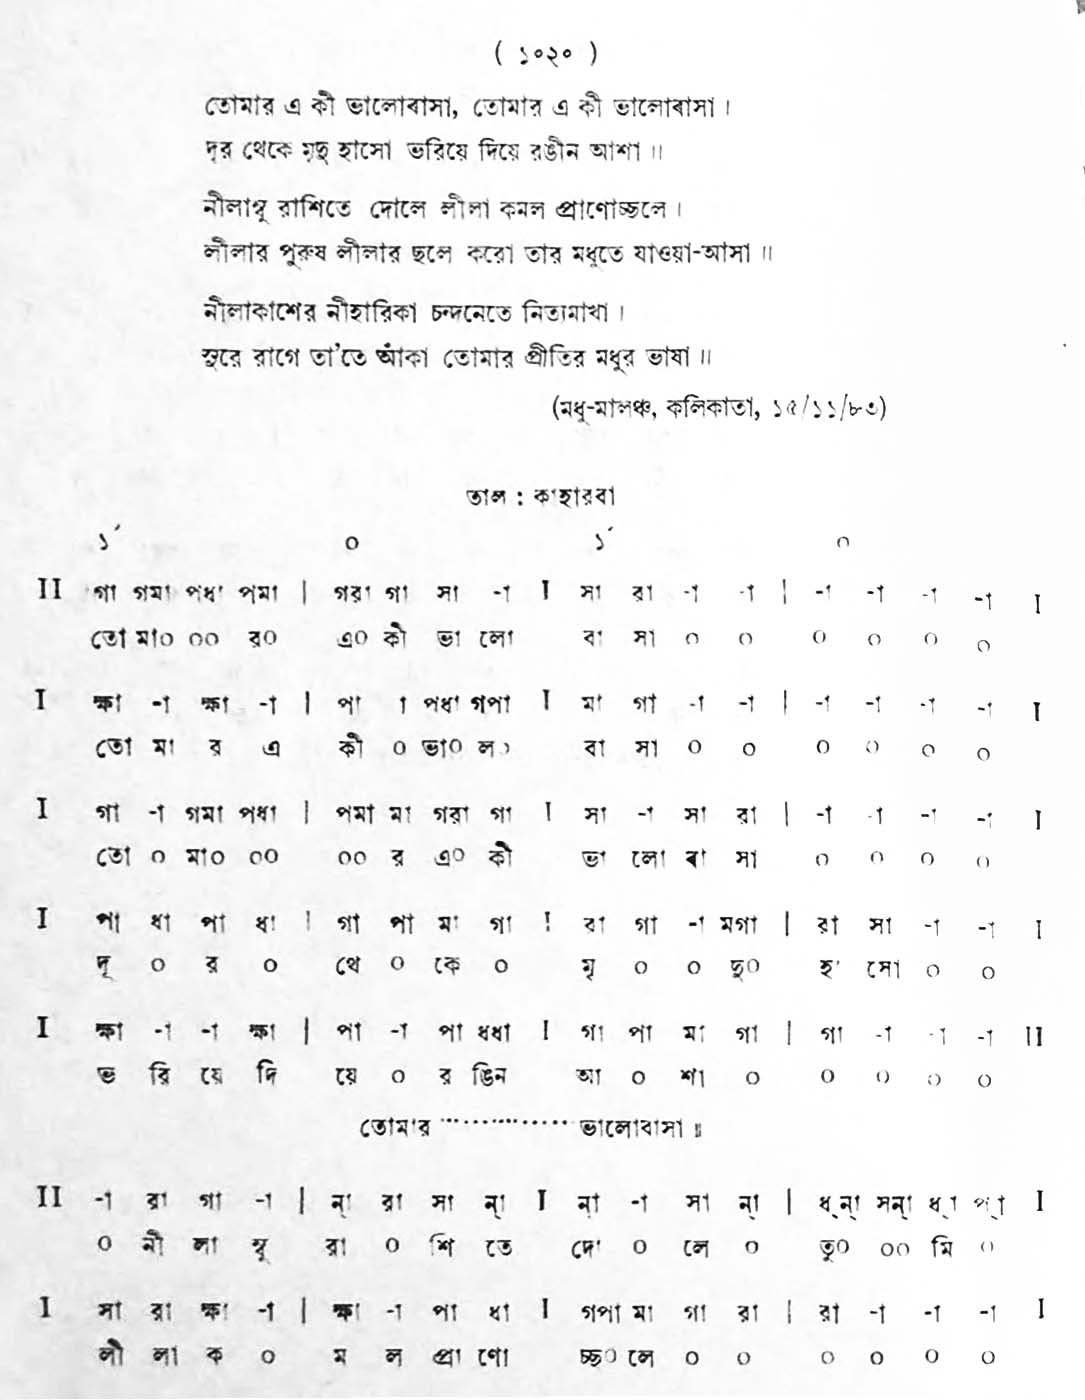 ( ১০২০ )
তোমার এ কী ভালোবাসা, তোমার এ কী ভালোবাসা ।
দূর থেকে মৃদু হাসো ভরিয়ে দিয়ে রঙীন আশা ॥
নীলাম্বু রাশিতে দোলে লীলা কমল প্রাণোচ্ছলে ।
লীলার পুরুষ লীলার ছলে করো তার মধুতে যাওয়া-আসা ॥
নীলাকাশের নীহারিকা চন্দনেতে নিত্যমাখা ।
সুরে রাগে তা'তে আঁকা তোমার প্রীতির মধুর ভাষা ॥
(মধু-মালঞ্চ, কলিকাতা, ১৫/১১/৮৩)
তাল : কাহারবা
১´ ০ ১´ ০
II গা গমা পধা পমা | গরা গা সা -া I সা রা -া -া | -া -া -া -া I
তো মা০ ০০ র০ এ০ কী ভা লো বা সা ০ ০ ০ ০ ০ ০
I ক্ষা -া ক্ষা -া | পা া পধা গপা I মা গা -া -া | -া -া -া -া I
তো মা র এ কী ০ ভা০ ল০ বা সা ০ ০ ০ ০ ০ ০
I গা -া গমা পধা | পমা মা গরা গা I সা -া সা রা | -া -া -া -া I
তো ০ মা০ ০০ ০০ র এ০ কী ভা লো বা সা ০ ০ ০ ০
I পা ধা পা ধা | গা পা মা গা I রা গা -া মগা | রা সা -া -া I
দূ ০ র ০ থে ০ কে ০ মৃ ০ ০ দু০ হা সো ০ ০
I ক্ষা -া -া ক্ষা | পা -া পা ধধা I গা পা মা গা | গা -া -া -া II
ভ রি য়ে দি য়ে ০ র ঙিন আ ০ শা ০ ০ ০ ০ ০
তোমার ··············· ভালোবাসা ॥
II -া রা গা -া | ন্‌া রা সা ন্‌া I ন্‌া -া সা ন্‌া | ধ্‌ন্‌া সন্‌া ধ্‌া প্‌া I
০ নী লা ম্বু রা ০ শি তে দো ০ লে ০ তু০ ০০ মি ০
I সা রা ক্ষা -া | ক্ষা -া পা ধা I গপা মা গা রা | রা -া -া -া I
লী লা ক ০ ম ল প্রা ণো চ্ছ০ লে ০ ০ ০ ০ ০ ০